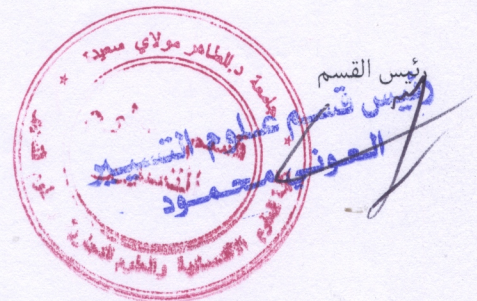 رئيس القسم
رئيس قسم علوم التسيير
العوني محمود
جامعة د.الطاهر مولاي سعيدة
العلوم الاقتصادية والعلوم التجارية
التسيير